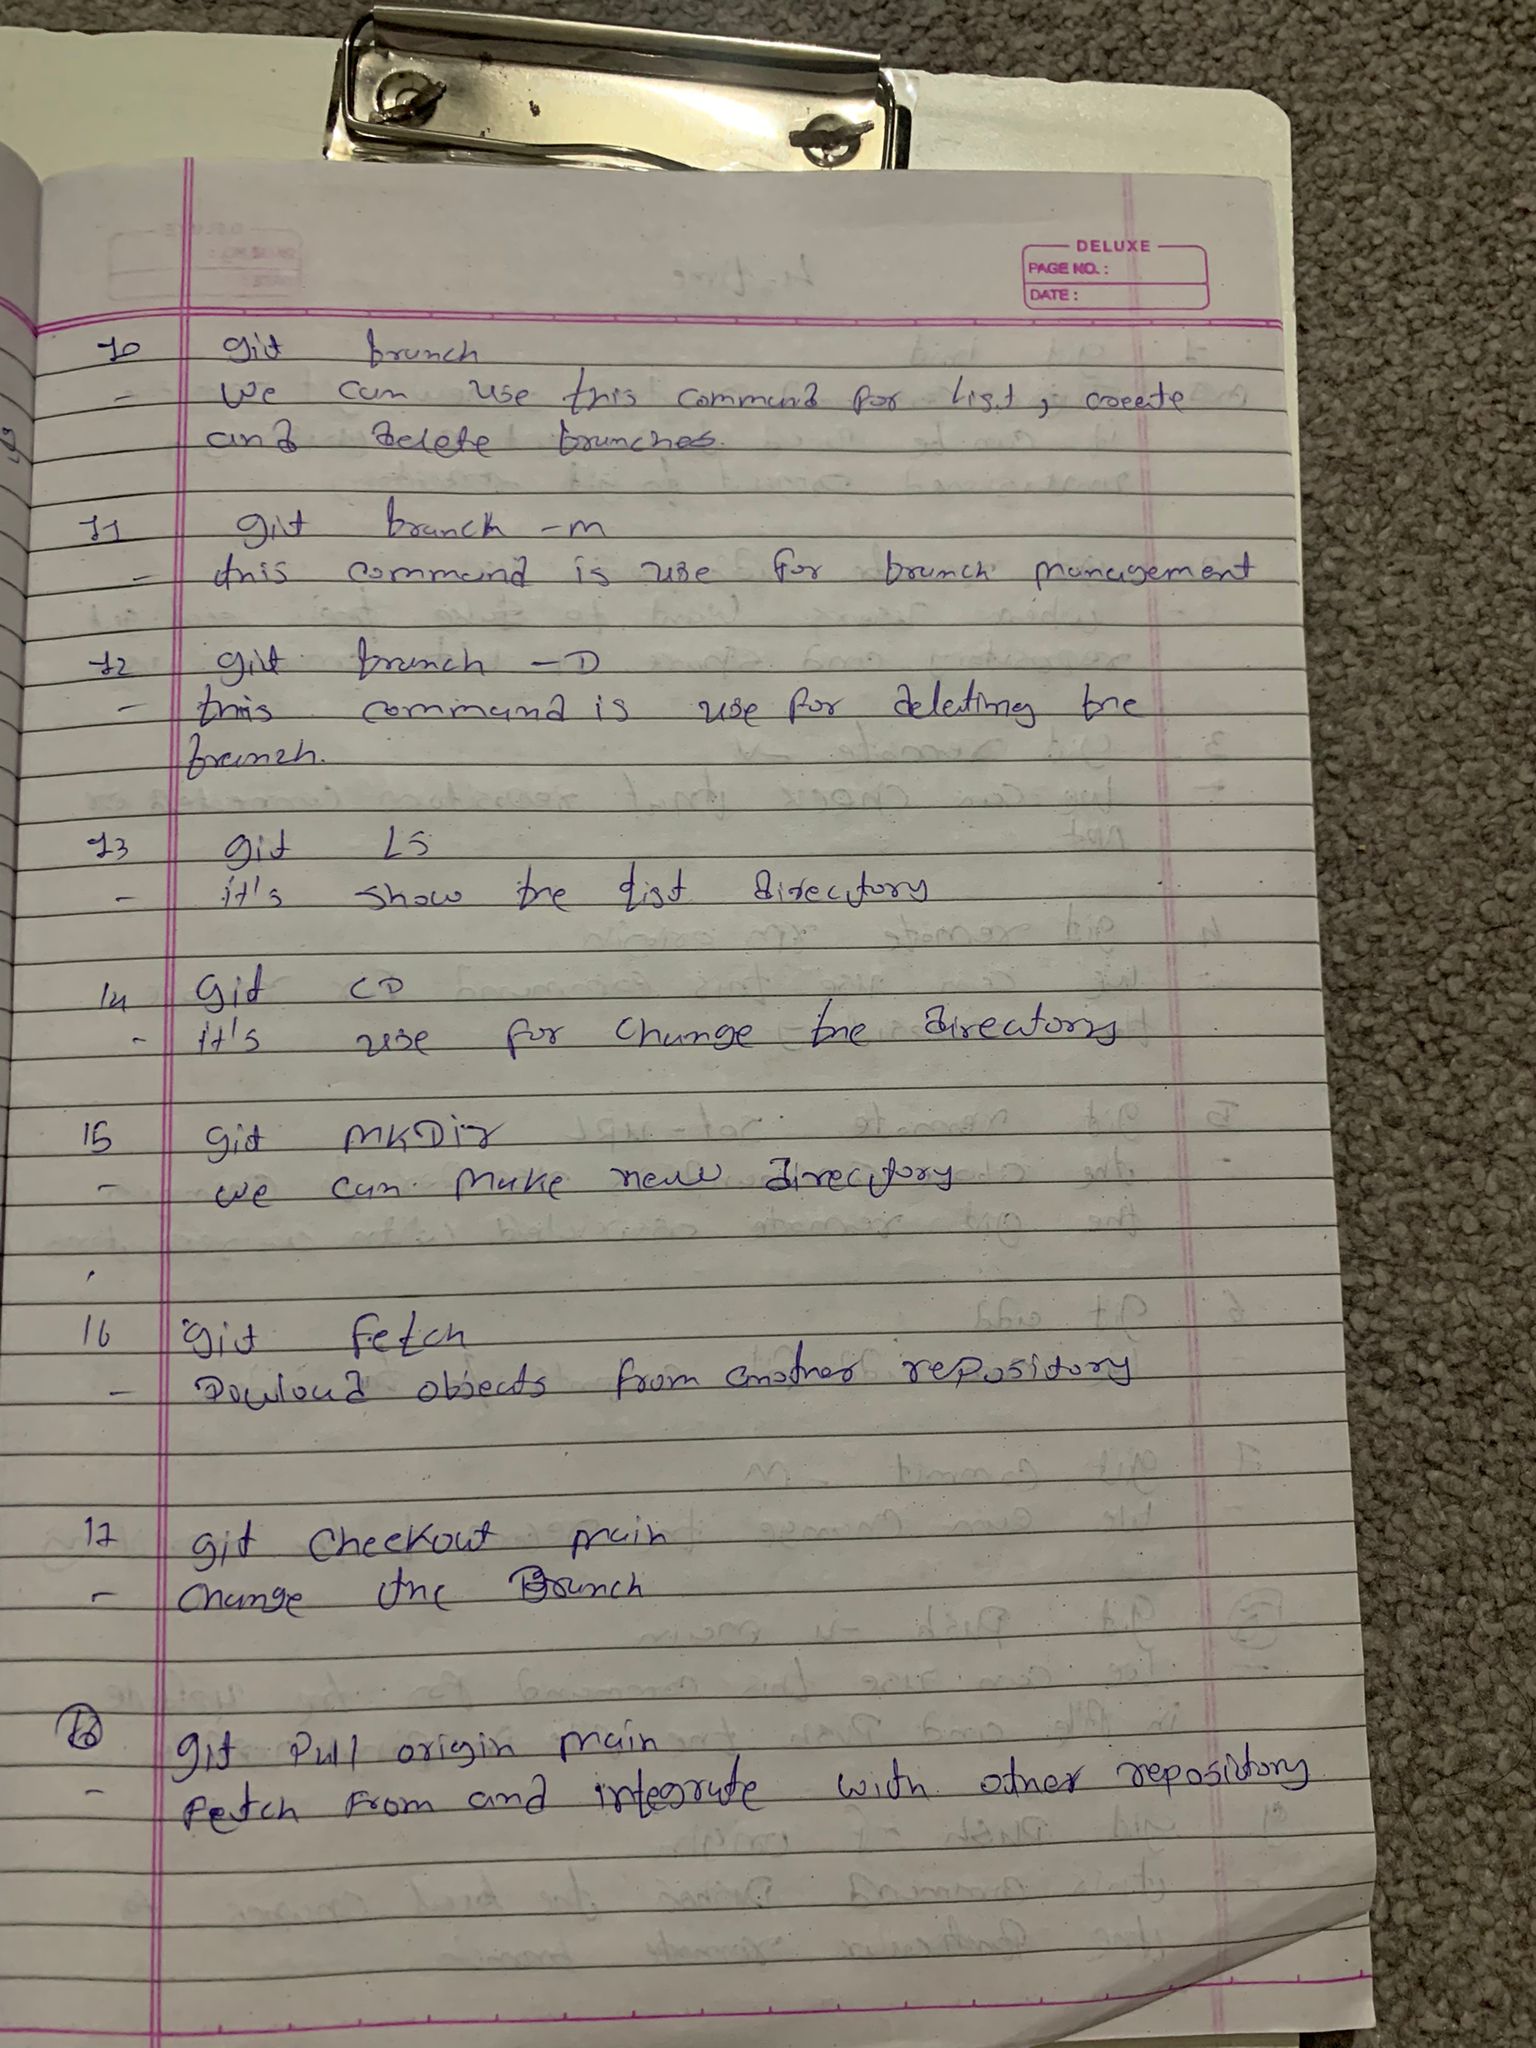 DELUXE
PAGE NO. :
DATE :
10 git branch
- we can use this command for list, create
and delete branches.
11 git branch -m
- this command is use for branch management
12 git branch -D
- this command is use for deleting the
branch.
13 git LS
- it's show the list directory
14 git CD
- it's use for change the directory
15 git MKDir
- we can make new directory
16 git fetch
- Dowload objects from another repository
17 git checkout main
- change the Branch
18 git Pull origin main
- Fetch from and integrate with other repository